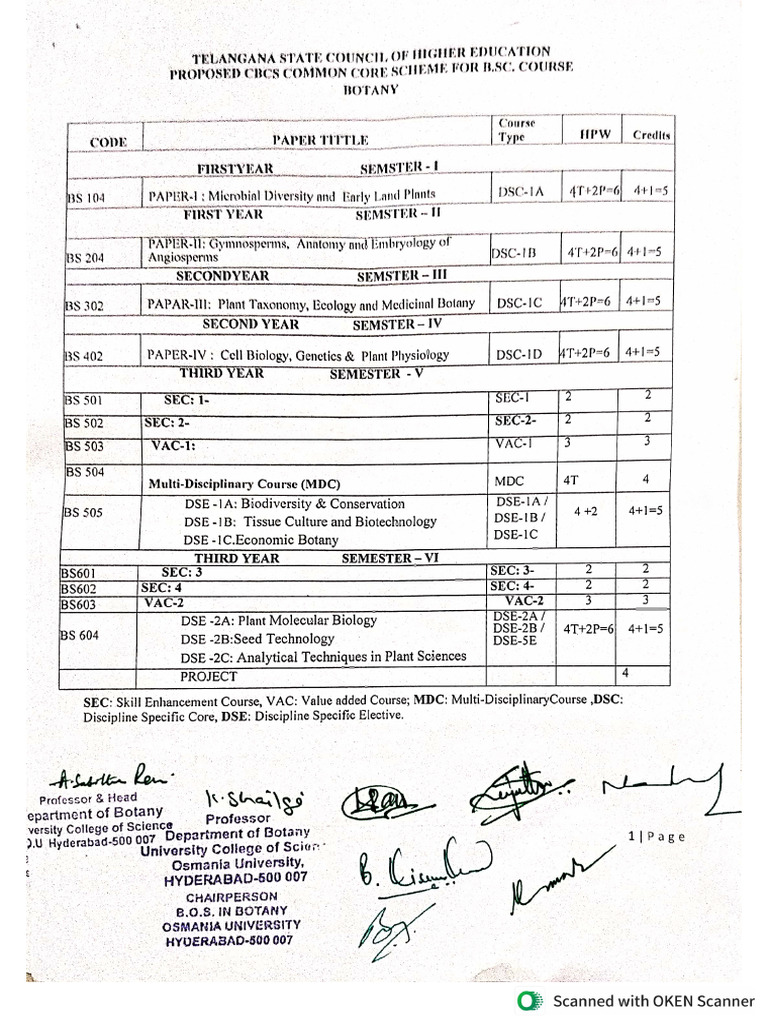 TELANGANA STATE COUNCIL OF HIGHER EDUCATION
PROPOSED CBCS COMMON CORE SCHEME FOR B.SC. COURSE
BOTANY
CODE PAPER TITTLE Course Type HPW Credits
FIRSTYEAR SEMSTER - I
BS 104 PAPER-I : Microbial Diversity and Early Land Plants DSC-1A 4T+2P=6 4+1=5
FIRST YEAR SEMSTER – II
BS 204 PAPER-II: Gymnosperms, Anatomy and Embryology of Angiosperms DSC-1B 4T+2P=6 4+1=5
SECONDYEAR SEMSTER – III
BS 302 PAPAR-III: Plant Taxonomy, Ecology and Medicinal Botany DSC-1C 4T+2P=6 4+1=5
SECOND YEAR SEMSTER – IV
BS 402 PAPER-IV : Cell Biology, Genetics & Plant Physiology DSC-1D 4T+2P=6 4+1=5
THIRD YEAR SEMESTER - V
BS 501 SEC: 1- SEC-1 2 2
BS 502 SEC: 2- SEC-2- 2 2
BS 503 VAC-1: VAC-1 3 3
BS 504 Multi-Disciplinary Course (MDC) MDC 4T 4
BS 505 DSE -1A: Biodiversity & Conservation DSE-1A / 4 +2 4+1=5
DSE -1B: Tissue Culture and Biotechnology DSE-1B /
DSE -1C.Economic Botany DSE-1C
THIRD YEAR SEMESTER – VI
BS601 SEC: 3 SEC: 3- 2 2
BS602 SEC: 4 SEC: 4- 2 2
BS603 VAC-2 VAC-2 3 3
BS 604 DSE -2A: Plant Molecular Biology DSE-2A / 4T+2P=6 4+1=5
DSE -2B:Seed Technology DSE-2B /
DSE -2C: Analytical Techniques in Plant Sciences DSE-5E
PROJECT 4
SEC: Skill Enhancement Course, VAC: Value added Course; MDC: Multi-DisciplinaryCourse ,DSC:
Discipline Specific Core, DSE: Discipline Specific Elective.
Professor & Head
epartment of Botany
versity College of Science
O.U Hyderabad-500 007
Professor
Department of Botany
University College of Scien
Osmania University,
HYDERABAD-500 007
CHAIRPERSON
B.O.S. IN BOTANY
OSMANIA UNIVERSITY
HYDERABAD-500 007
1 | Page
Scanned with OKEN Scanner